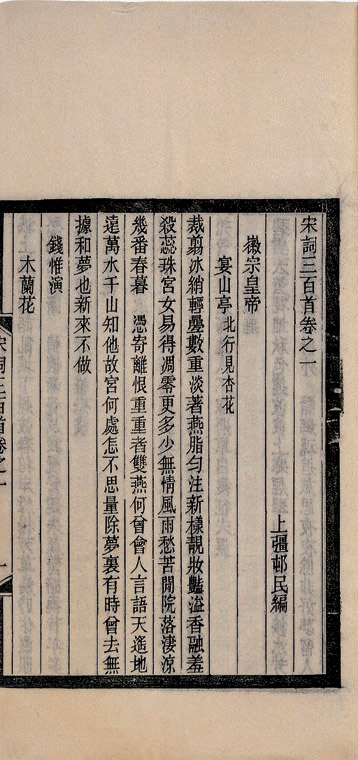 宋詞三百首卷之一
上彊邨民編
徽宗皇帝
宴山亭 北行見杏花
裁翦冰綃輕疊數重淡著燕脂勻注新樣靚妝豔溢香融羞
殺蕊珠宮女易得凋零更多少無情風雨愁苦閒院落淒涼
幾番春暮 憑寄離恨重重者雙燕何曾會人言語天遙地
遠萬水千山知他故宮何處怎不思量除夢裏有時曾去無
據和夢也新來不做
錢惟演
木蘭花
宋詞三百首卷之一
一